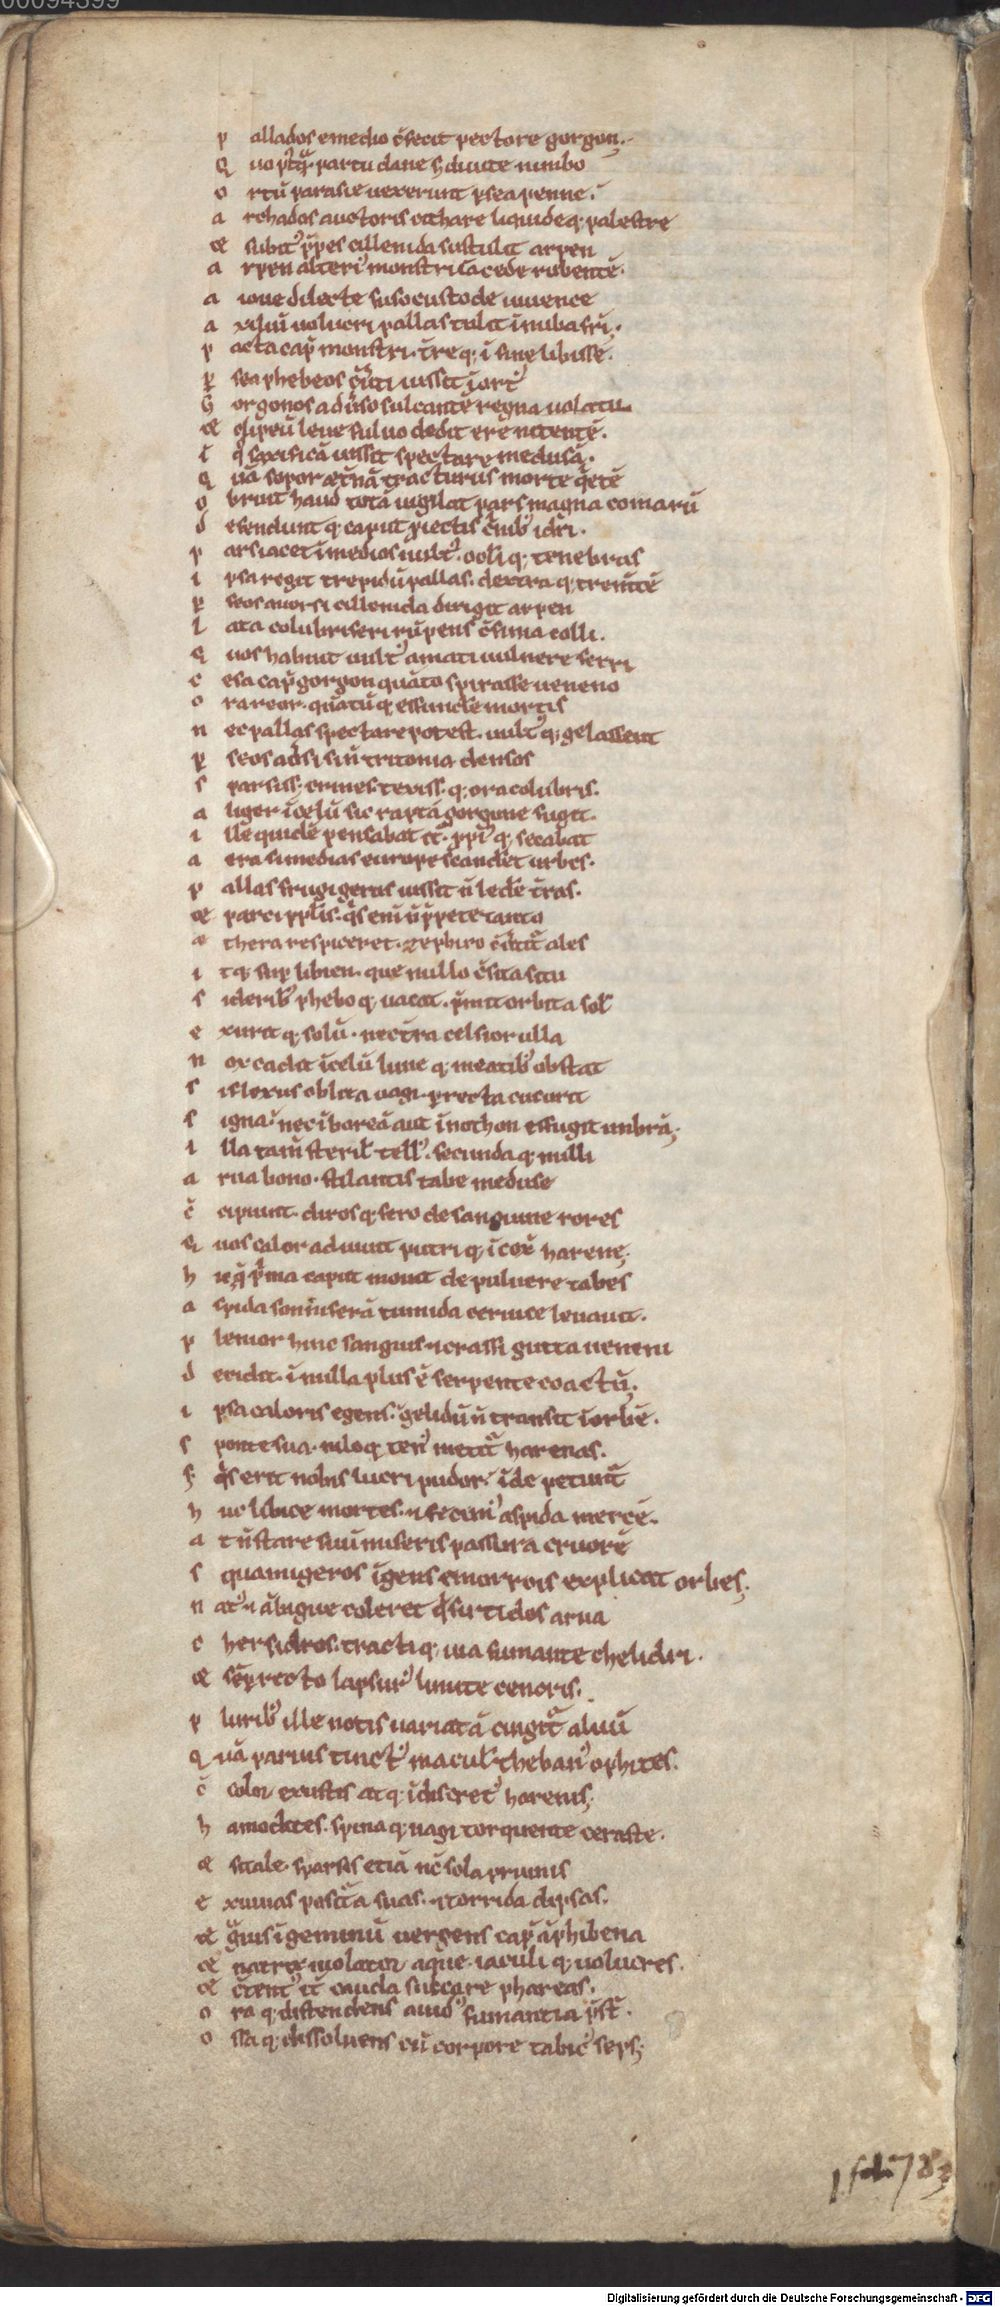 00094399
p allados e medio c̄fecit pectore gorgon.
Q uo postq̄ partu dane s; diuite nimbo
o rtū parasie uexerunt psea penne.
a rchados auctoris cithare liquideq; palestre
& subit' p̄pes cillenida sustulit arpen
a rpen alteri' monstri ia cede rubentē.
a ioue dilecte fuso custode iuuence
a xiliū uolucri pallas tulit inuba fri.
p acta cap̄ monstri. t̄req; ī fine libisse.
p sea phebeos cūti iussit ī ort'
G orgonos aduso sulcantē regna uolatu
& clipeū leue fuluo dedit ere nitentē.
ī q̊ saxificā iussit spectare medusā.
Q uā sopor æt̄nā tracturus morte q̄etē
o bruit haud totā uigilat pars magna comarū
d efendunt q; caput p̄iectis c̄nib' idri.
p ars iacet ī medios uult' ocliq; tenebras
i psa regit trepidū pallas. dextraq; trem̄tē
p seos auorsi cillenida dirigit arpen
l ata colubriferi rūpens c̄finia colli.
Q uos habuit uult' amati uulnere ferri
c esa cap̄ gorgon quāto spirasse ueneno
o ra reor. quātūq; effundere mortis
n ec pallas spectare potest. uult'q; gelassent
p seos adsi si n̄ tritonia densos
s parsiss; crines. texiss; q; ora colubris.
a liger ī celū sic rapta gorgone fugit.
i lle quidē pensabat it̄. ppi'q; secabat
a era si medias europe scandet urbes.
p allas frugigeras iussit n̄ ledē t̄ras.
& parci pplis. q̄s eni n̄ p̄pete tanto
a thera respiceret. zephiro c̄titr̄ ales
i tq; sup̄ libien. que nullo c̄sita situ
s iderib' phebo q; uacat. p̄mit orbita sol'
e xuritq; solū. nec t̄ra celsior ulla
n ox cadit ī celū lune q; meatib' obstat
s i flexus oblita uagi. p recta cucurit
s igna. nec ī boreā aut ī nothon effugit umbrā.
i lla tam̄ steril' tell'. fecunda q; nulli
a rua bono. stilantis tabe meduse
c̄ cipiunt. dirosq; fero de sanguine rores
Q uos calor adiuuit putri q; ī cox̄ harene.
h ic q̄ p̄ma caput mouit de puluere tabes
a spida somniferā tumida ceruice leuauit.
p lenior hinc sanguis & crassi gutta ueneni
d ecidit. ī nulla plus ē serpente coactū.
i psa caloris egens. gelidū n̄ transit ī orbē.
s ponte sua. nilo q; ten' metitr̄ harenas.
s; q̄s erit nobis lucri pudor. īde petuntr̄
h uc libice mortes. & fecim' aspida mercē.
a t n̄ stare suū miseris passura cruorē
s quamigeros īgens emorrois explicat orbes.
n at' & ābigue coleret q̄ sirtidos arua
c hersidros. tractiq; uia fumante chelidri.
& sēp recto lapsur' limite cencris.
p lurib' ille notis uariatā cingitr̄ aluū
Q uā paruis tinct' macul' theban' ophites.
c̄ color exustis atq; īdiscret' harenis.
h amodites. spina q; uagi torquente ceraste.
& scitale. sparsis etiā nc̄ sola pruinis
e xuuias positr̄a suas. & torrida dipsas.
& g̊uis ī geminū uergens cap̄ āphibena
& natrix uiolator aque. iaculi q; uolucres.
& c̄tent' it̄ cauda sulcare phareas.
o ra q; distendens auid' fumantia p̄str̄.
o ssa q; dissoluens cū corpore tabic' seps;
Digitalisierung gefördert durch die Deutsche Forschungsgemeinschaft - DFG